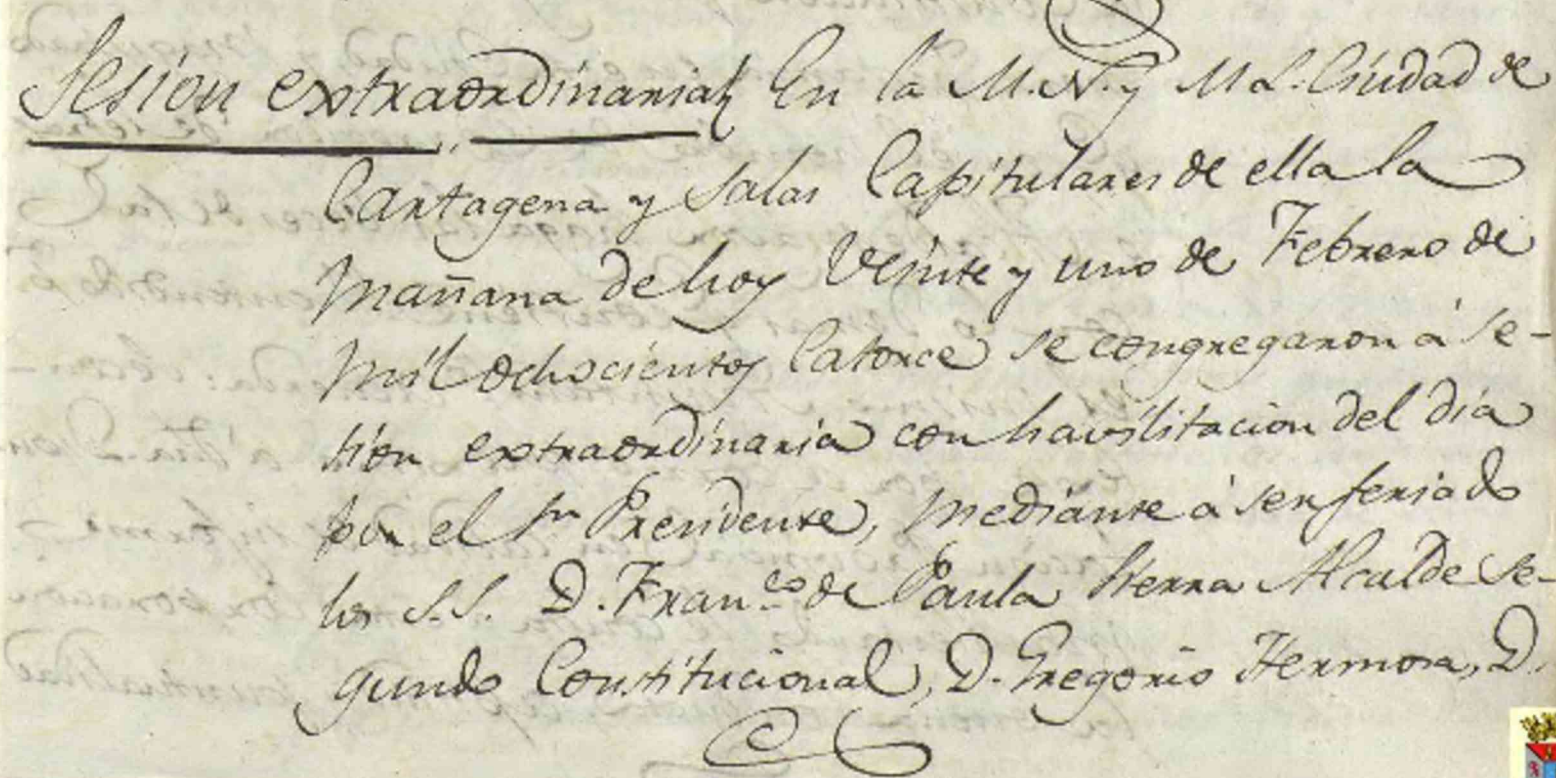 Sesion extraordinaria En la M. N. y M L. Ciudad de
Cartagena y Salas Capitulares de ella la
mañana de hoy Veinte y uno de Febrero de
mil ochocientos Catorce se congregaron á se-
sion extraordinaria con havilitacion del dia
por el Sr. Presidente, mediante á ser feriado
los S.S. D. Fran.co de Paula Sierra Alcalde Se-
gundo Constitucional, D. Gregorio Hermosa, D.